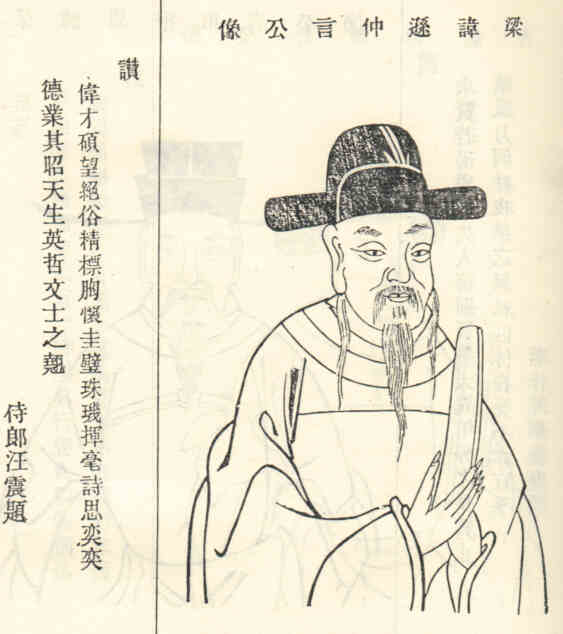 梁諱遜仲言公像
讚
偉才碩望絕俗精標胸懷圭璧珠璣揮毫詩思奕奕
德業其昭天生英哲文士之翹
侍郎汪震題